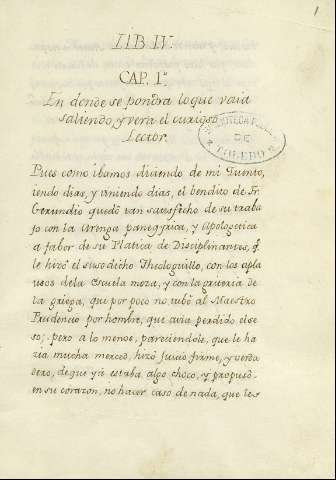 1
LIB. IV.
CAP. 1º
En donde se pondra loque vaia
saliendo, y vera el curioso
Lector.
DE
TOLEDO
Pues como ibamos diciendo de mi Quento,
iendo dias, y viniendo dias, el bendito de Fr.
Gerundio quedó tan satisfecho de su traba
jo con la Arenga panegyrica, y Apologetica
a fabor de su Platica de Disciplinantes, q.
le hizo el susodicho Theologuillo, con los apla
usos dela Escuela moza, y con la griteria de
la griega, que por poco no tubó al Maestro
Prudencio por hombre, que avia perdido else
so; pero a lo menos, pareciendole, que le ha
zia mucha merced, hizó Juicio firme, y verda
dero, de que yá estaba algo choco, y propusó
en su corazon, no hacer caso de nada, que les